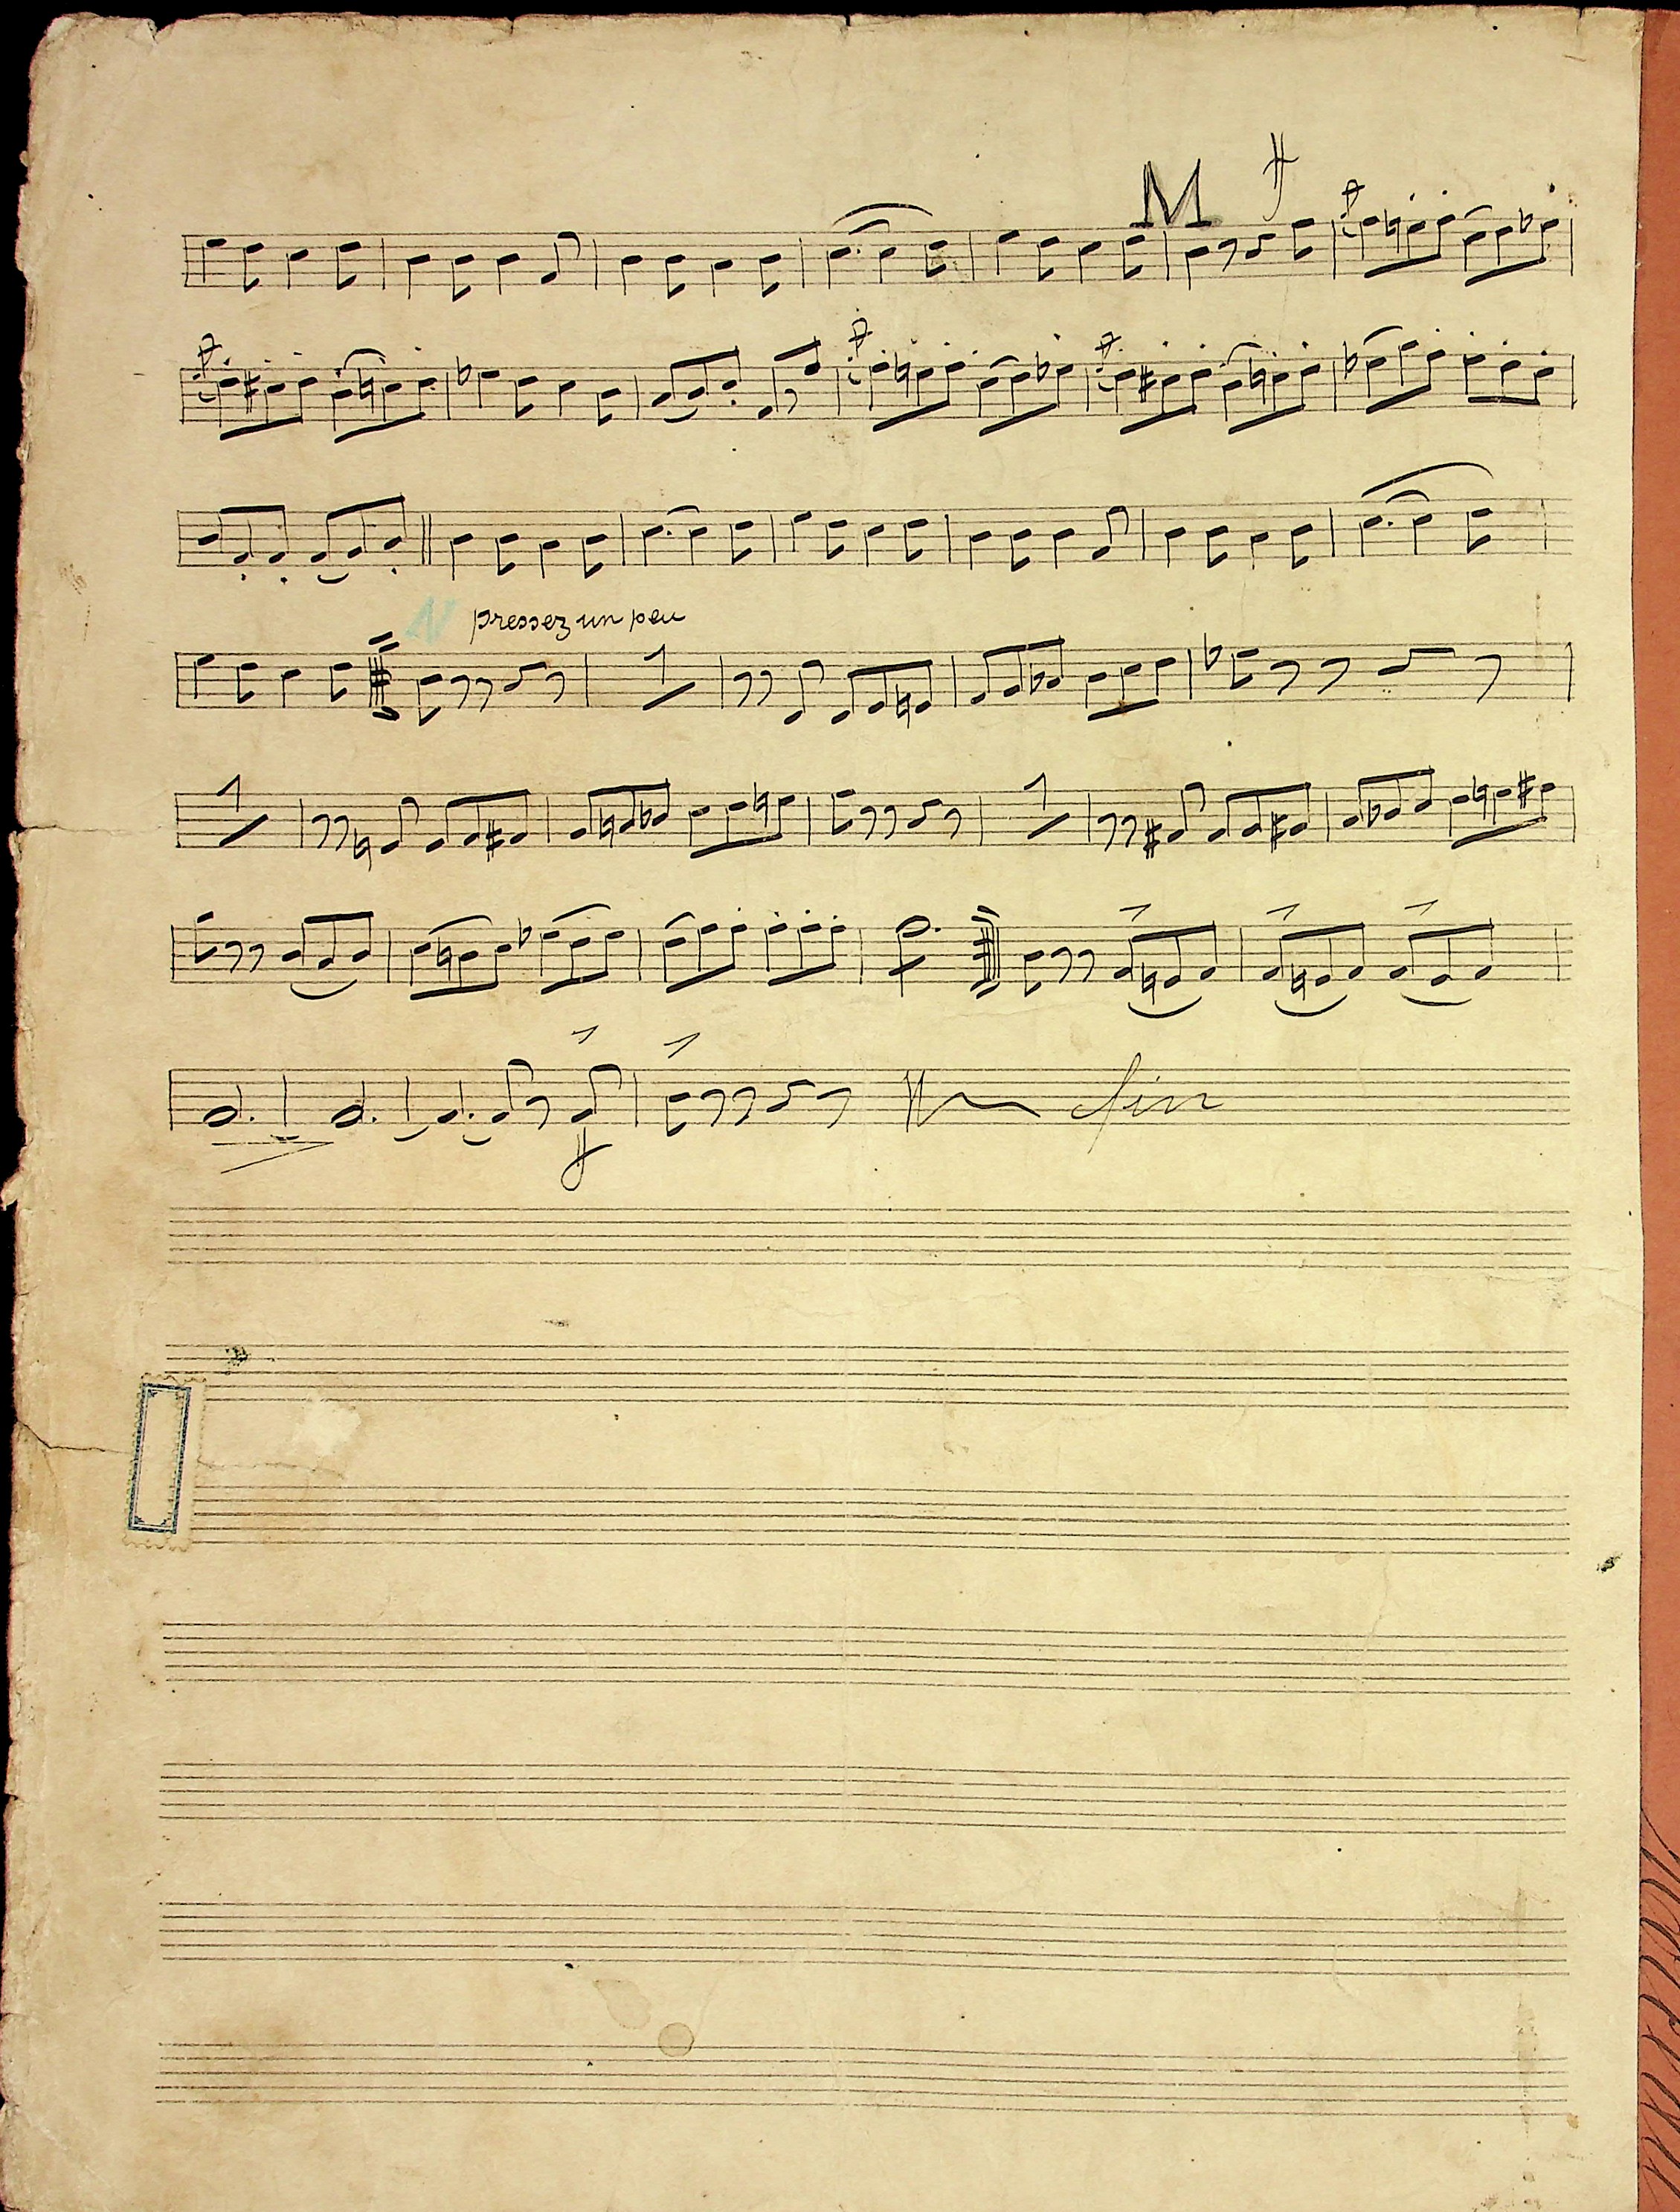 M ff
N pressez un peu
ff
fin